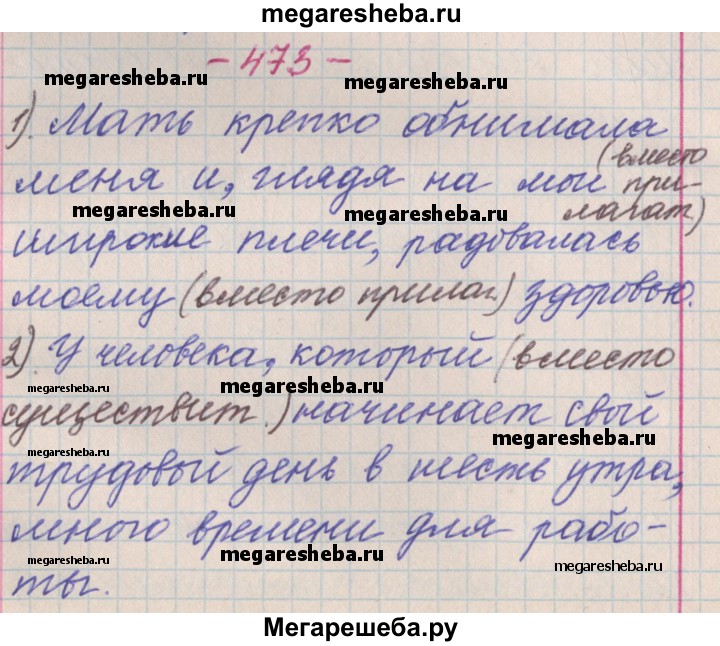 megaresheba.ru
- 473 -
megaresheba.ru megaresheba.ru
1). Мать крепко обнимала
(вместо
меня и, глядя на мои при-
megaresheba.ru megaresheba.ru
лагат.)
широкие плечи, радовалась
megaresheba.ru
моему (вместо прилаг.) здоровью.
2). У человека, который (вместо
megaresheba.ru megaresheba.ru
существит.) начинает свой
megaresheba.ru megaresheba.ru
трудовой день в шесть утра,
много времени для рабо-
megaresheba.ru megaresheba.ru megaresheba.ru
ты.
Мегарешеба.ру